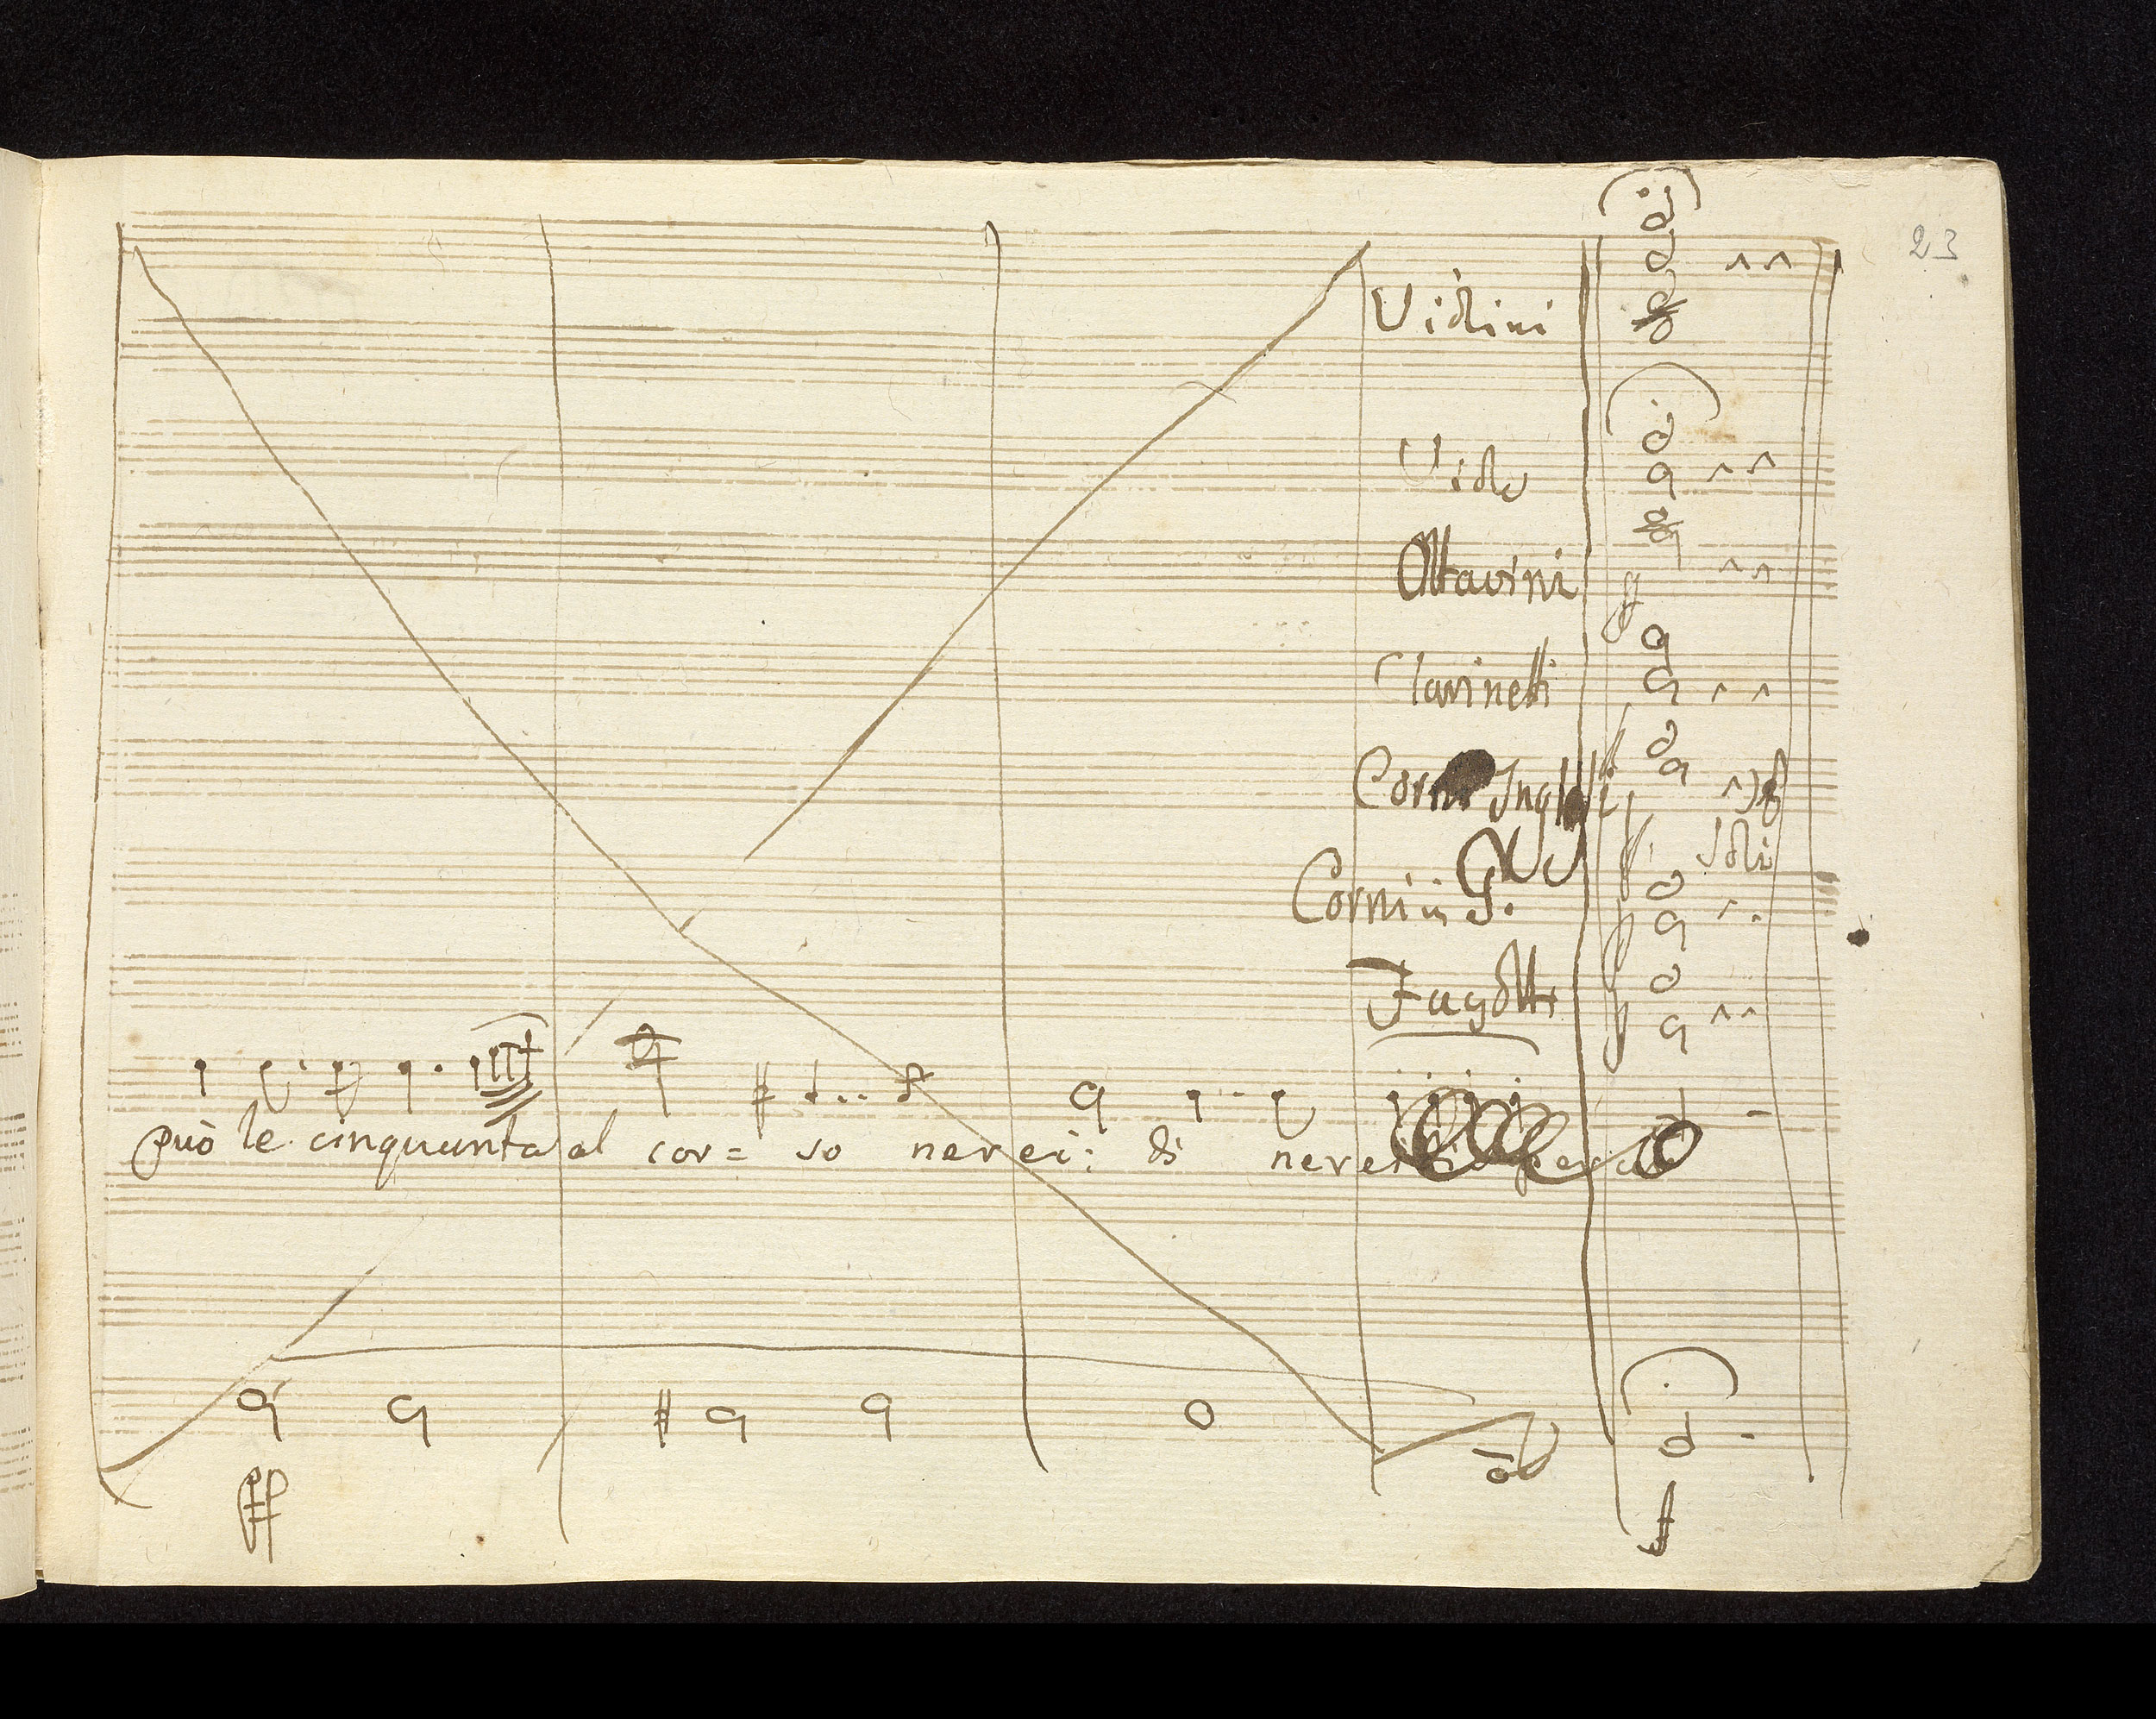 23
Violini
Viole
Ottavini
Clarinetti
Corni Inglesi
Soli
Corni in G.
Fagotti
può le cinquanta al cor= so nerei: di nerei
ff